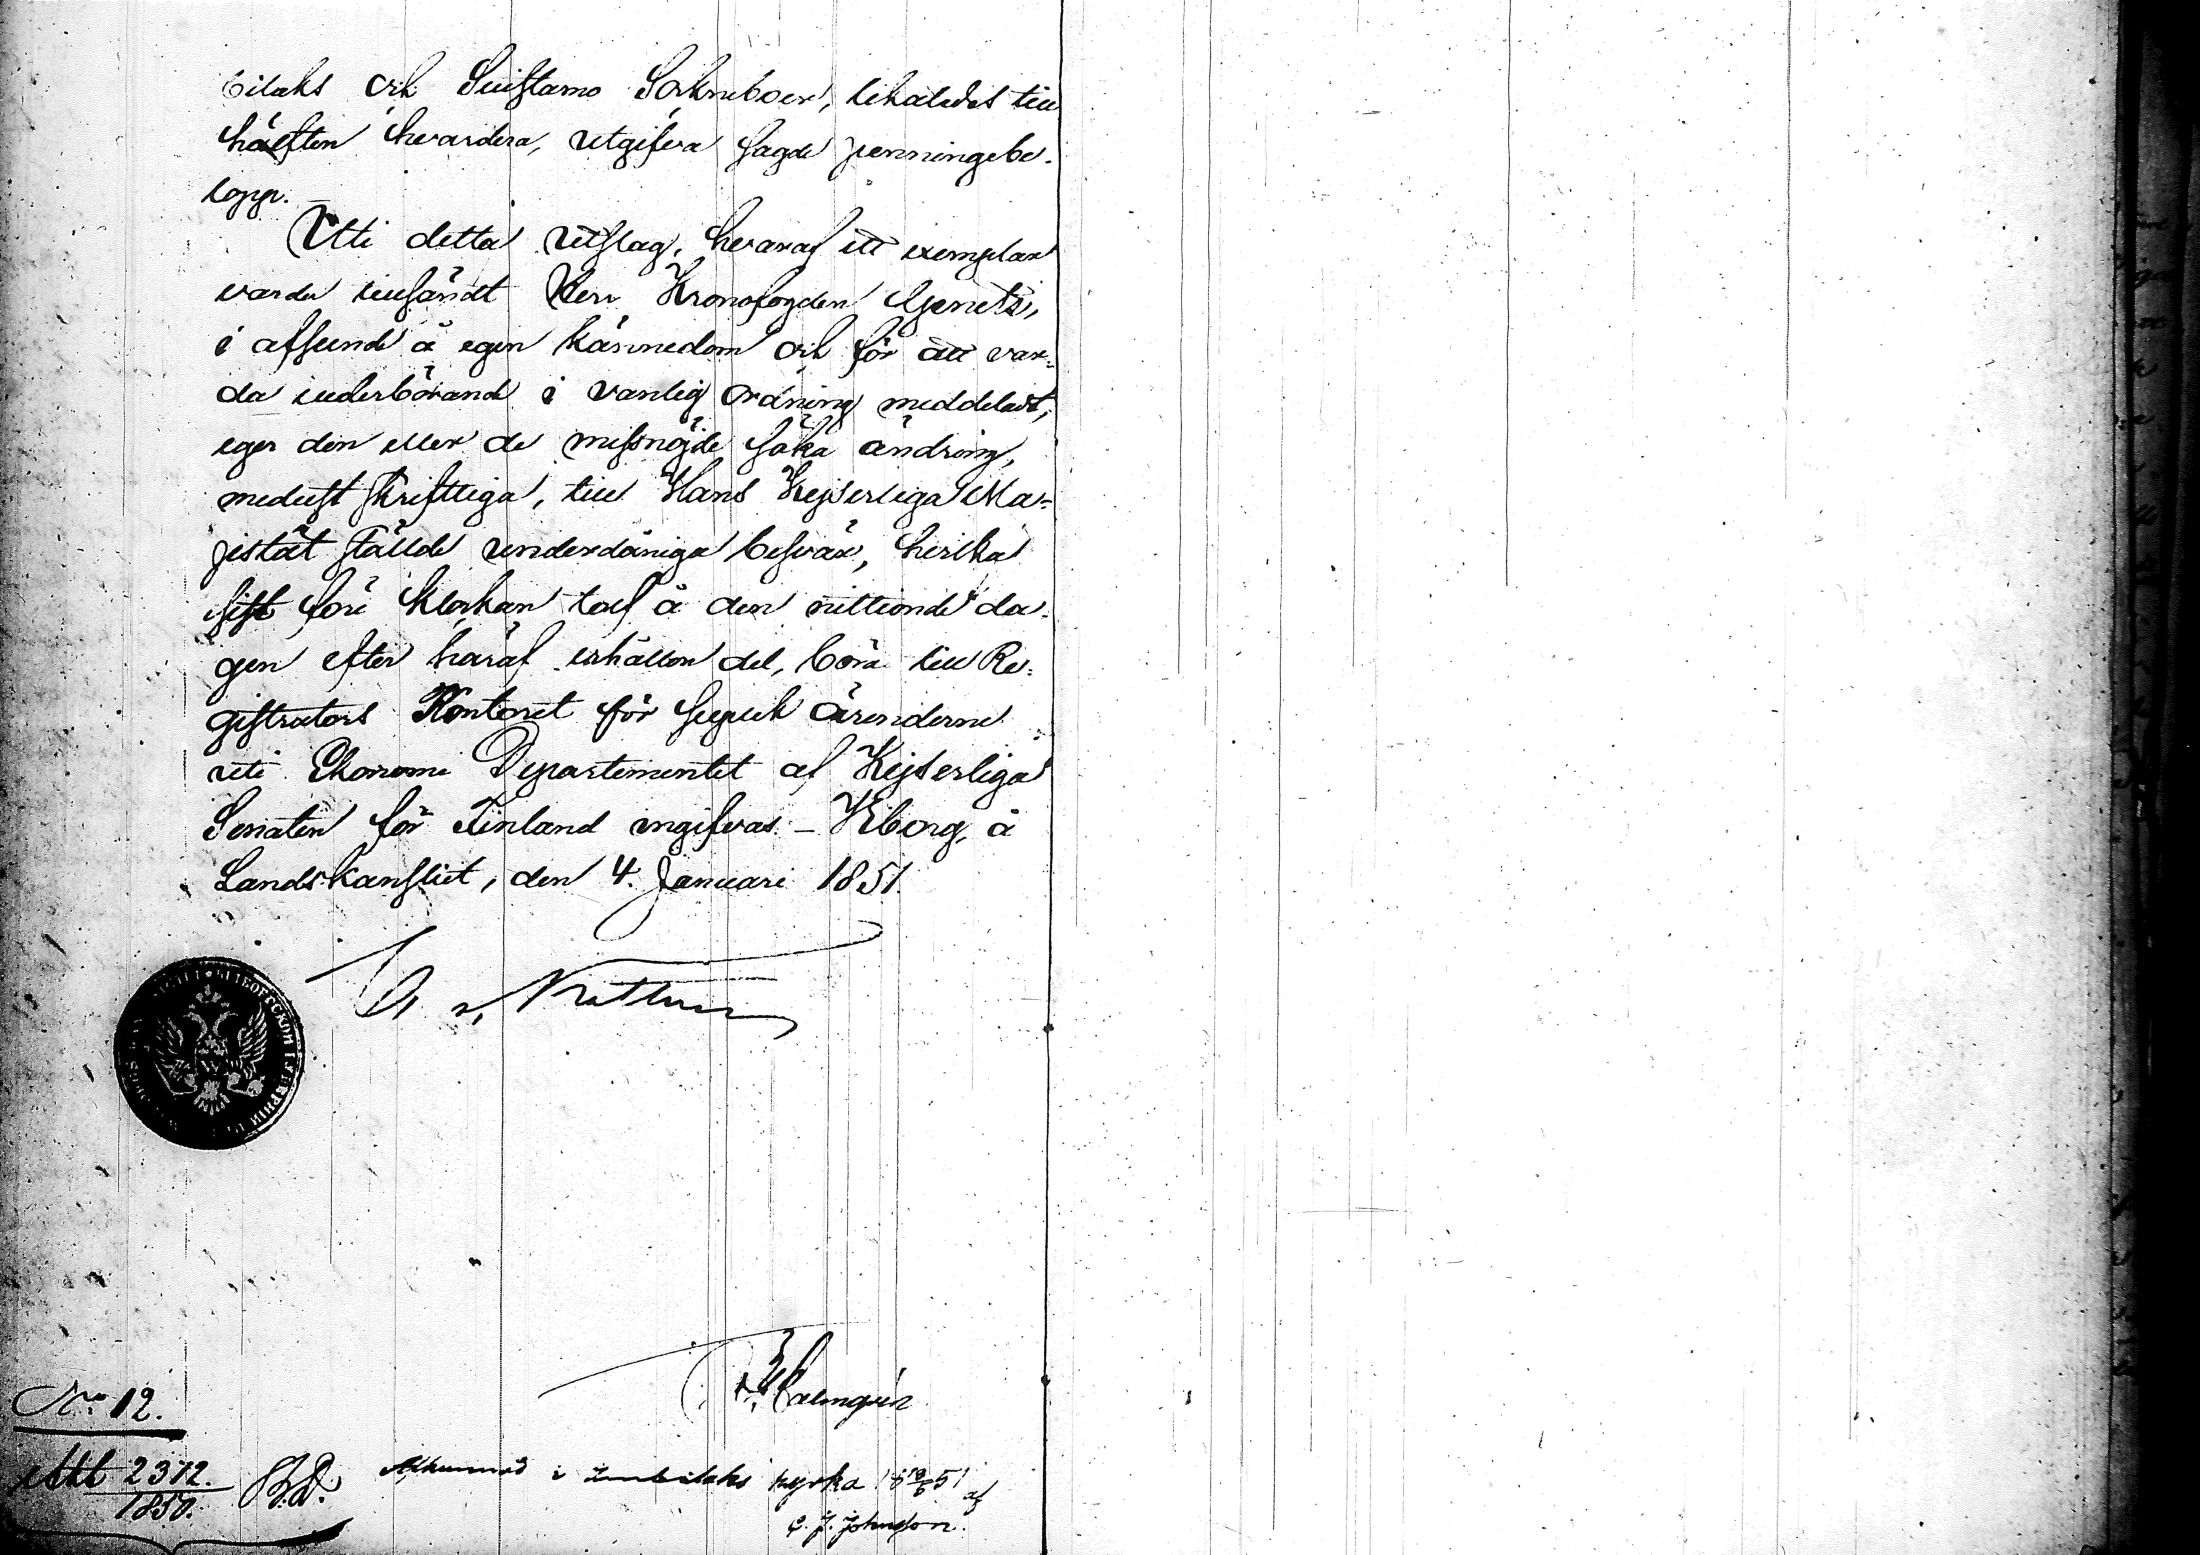 bilaks och Suistamo Sockneboer, likaledes till
hälften hvardera, utgifva sagde penningebe-
lopp.
Uti detta utslag, hvaraf ett exemplar
varder tillsändt Herr Kronofogden Genetz,
i afseende å egen kännedom och för att var-
da vederbörande i vanlig ordning meddeladt,
eger den eller de missnöjde söka ändring,
medelst skriftliga, till Hans Kejserliga Ma-
jestät stälde underdåniga besvär, hvilka
sist före klockan tolf å den nittionde da-
gen efter häraf erhållen del, böra till Re-
gistrators Kontoret för supplik ärenderne
uti Ekonomi Departementet af Kejserliga
Senaten för Finland ingifvas. – Wiborg, å
Landskansliet, den 4. Januari 1851.
Nº 12.
2372.
1850.
Afkunnad i Imbilaks kyrka af
C. J. Johnsson.